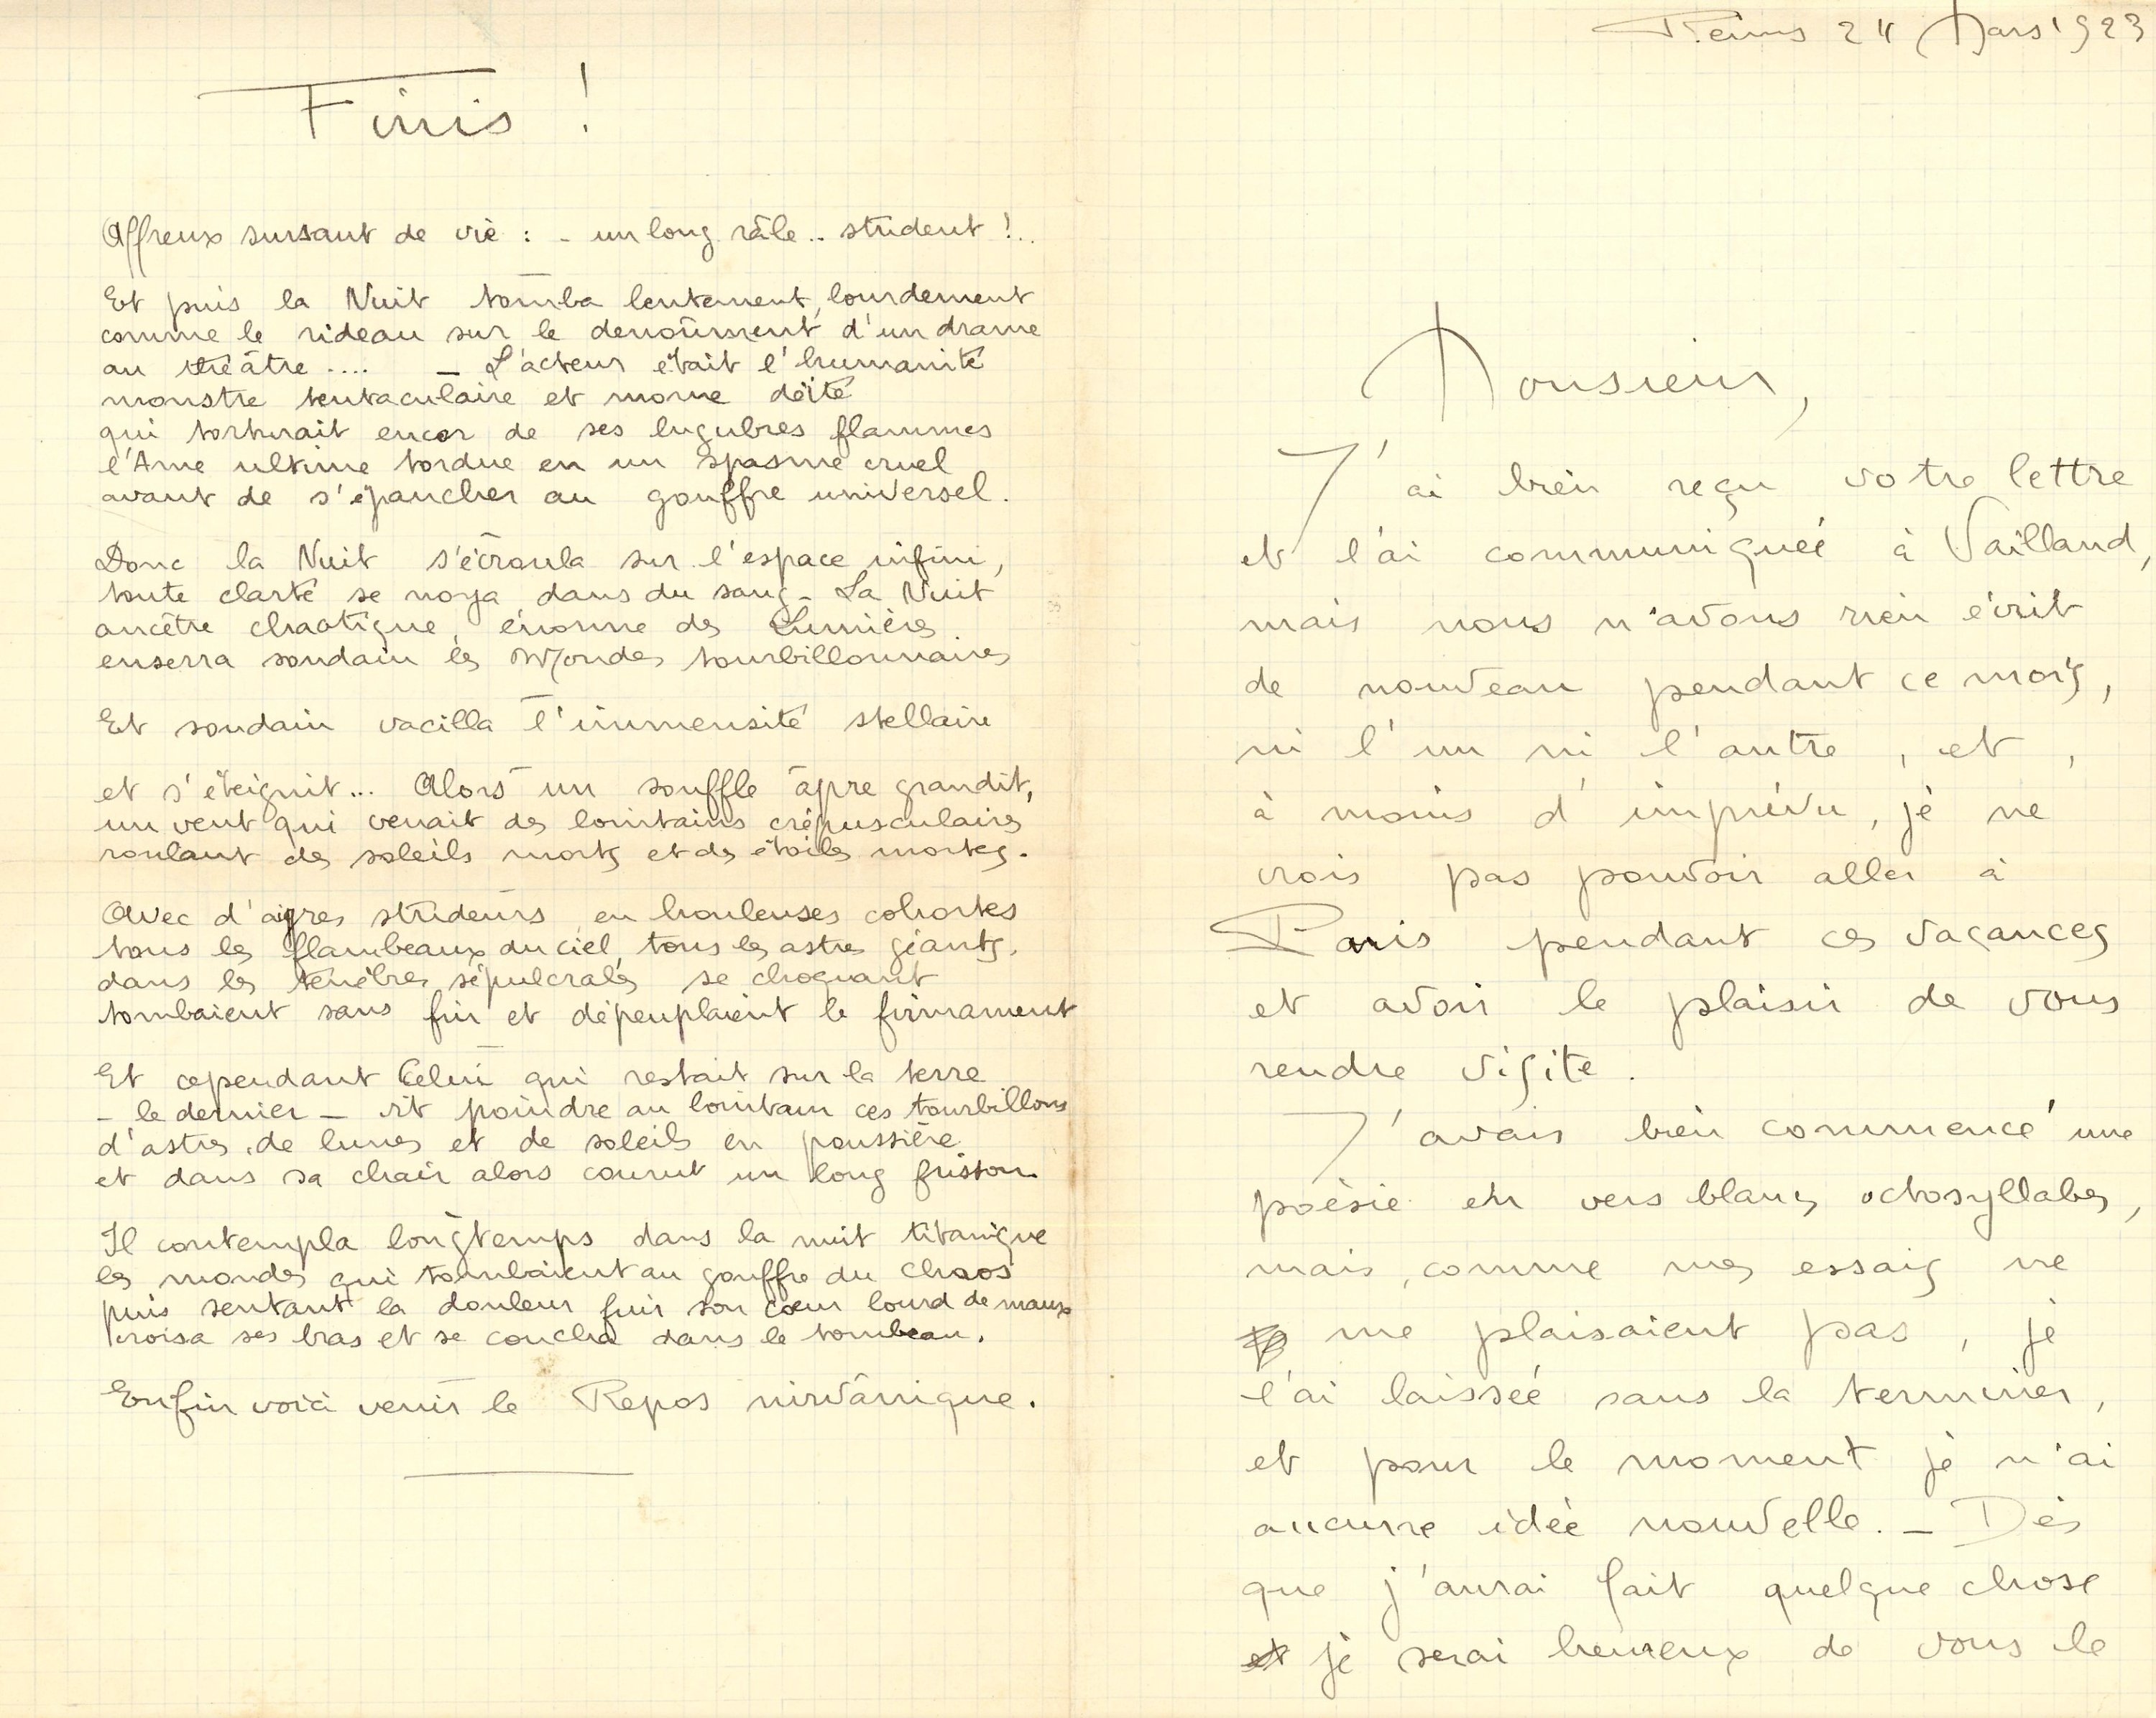 Finis !
Affreux sursaut de vie : - un long râle .. strident !..
Et puis la Nuit tomba lentement, lourdement
comme le rideau sur le denoûment d'un drame
au théâtre .... – L'acteur était l'humanité
monstre tentaculaire et morne déité
qui torturait encor de ses lugubres flammes
l'Ame ultime tordue en un spasme cruel
avant de s'épancher au gouffre universel.
Donc la Nuit s'écroula sur l'espace infini,
toute clarté se noya dans du sang – La Nuit
ancêtre chaotique, énorme des Lumières.
enserra soudain les Mondes tourbillonnaires
Et soudain vacilla l'immensité stellaire
et s'éteignit... Alors un souffle âpre grandit,
un vent qui venait des lointains crépusculaires
roulant des soleils morts et des étoiles mortes.
Avec d'aigres strideurs en houleuses cohortes
tous les flambeaux du ciel, tous les astres géants,
dans les ténèbres sépulcrales se choquant
tombaient sans fin et dépeuplaient le firmament
Et cependant Celui qui restait sur la terre
– le dernier – vit poindre au lointain ces tourbillons
d'astres, de lunes et de soleils en poussière
et dans sa chair alors courut un long frisson.
Il contempla longtemps dans la nuit titanique
les mondes qui tombaient au gouffre du chaos
puis sentant la douleur fuir son cœur lourd de maux
croisa ses bras et se coucha dans le tombeau.
Enfin voici venir le Repos nirvânique.
Reims 24 Mars 1923
Monsieur,
J'ai bien reçu votre lettre
et l'ai communiquée à Vailland,
mais nous n'avons rien écrit
de nouveau pendant ce mois,
ni l'un ni l'autre, et,
à moins d'imprévu, je ne
crois pas pouvoir aller à
Paris pendant ces vacances
et avoir le plaisir de vous
rendre visite.
J'avais bien commencé une
poésie en vers blancs octosyllabes,
mais, comme mes essais ne
me plaisaient pas, je
l'ai laissée sans la terminer,
et pour le moment je n'ai
aucune idée nouvelle. – Dès
que j'aurai fait quelque chose
et je serai heureux de vous le